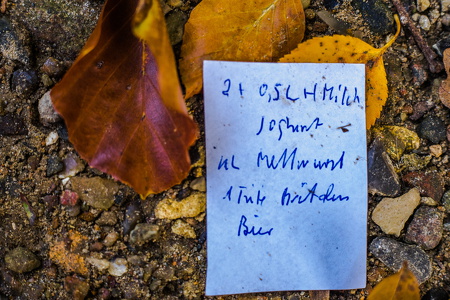 2x 0,5L H Milch
Joghurt
kl. Mettwurst
1 Tüte Brötchen
Bier